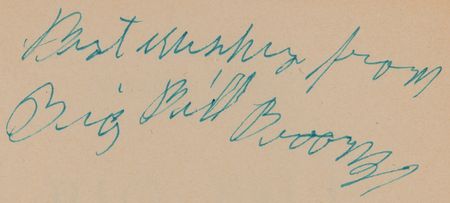 Best wishes from
Big Bill Broonzy